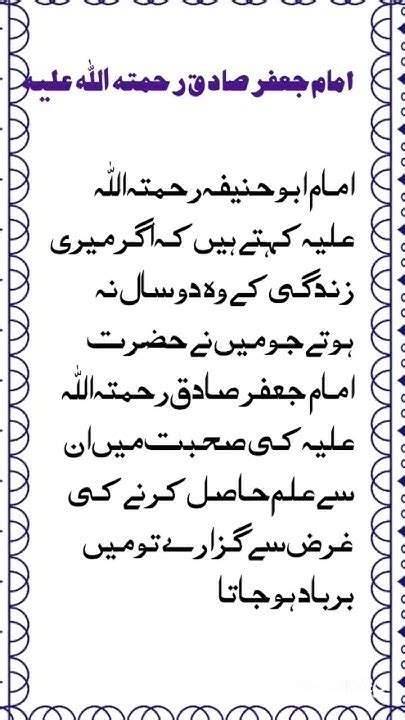 امام جعفر صادق رحمتہ اللہ علیہ
امام ابو حنیفہ رحمتہ اللہ
علیہ کہتے ہیں کہ اگر میری
زندگی کے وہ دو سال نہ
ہوتے جو میں نے حضرت
امام جعفر صادق رحمتہ اللہ
علیہ کی صحبت میں ان
سے علم حاصل کرنے کی
غرض سے گزارے تو میں
برباد ہو جاتا